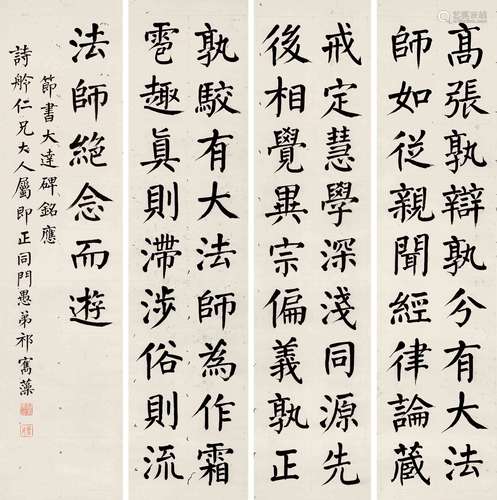 髙張孰辯孰分有大法
師如従親聞經律論藏
戒定慧學深淺同源先
後相覺異宗偏義孰正
孰駮有大法師為作霜
雹趣眞則滯涉俗則流
法師絕念而遊
節書大達碑銘應
詩舲仁兄大人屬即正同門愚弟祁寯藻